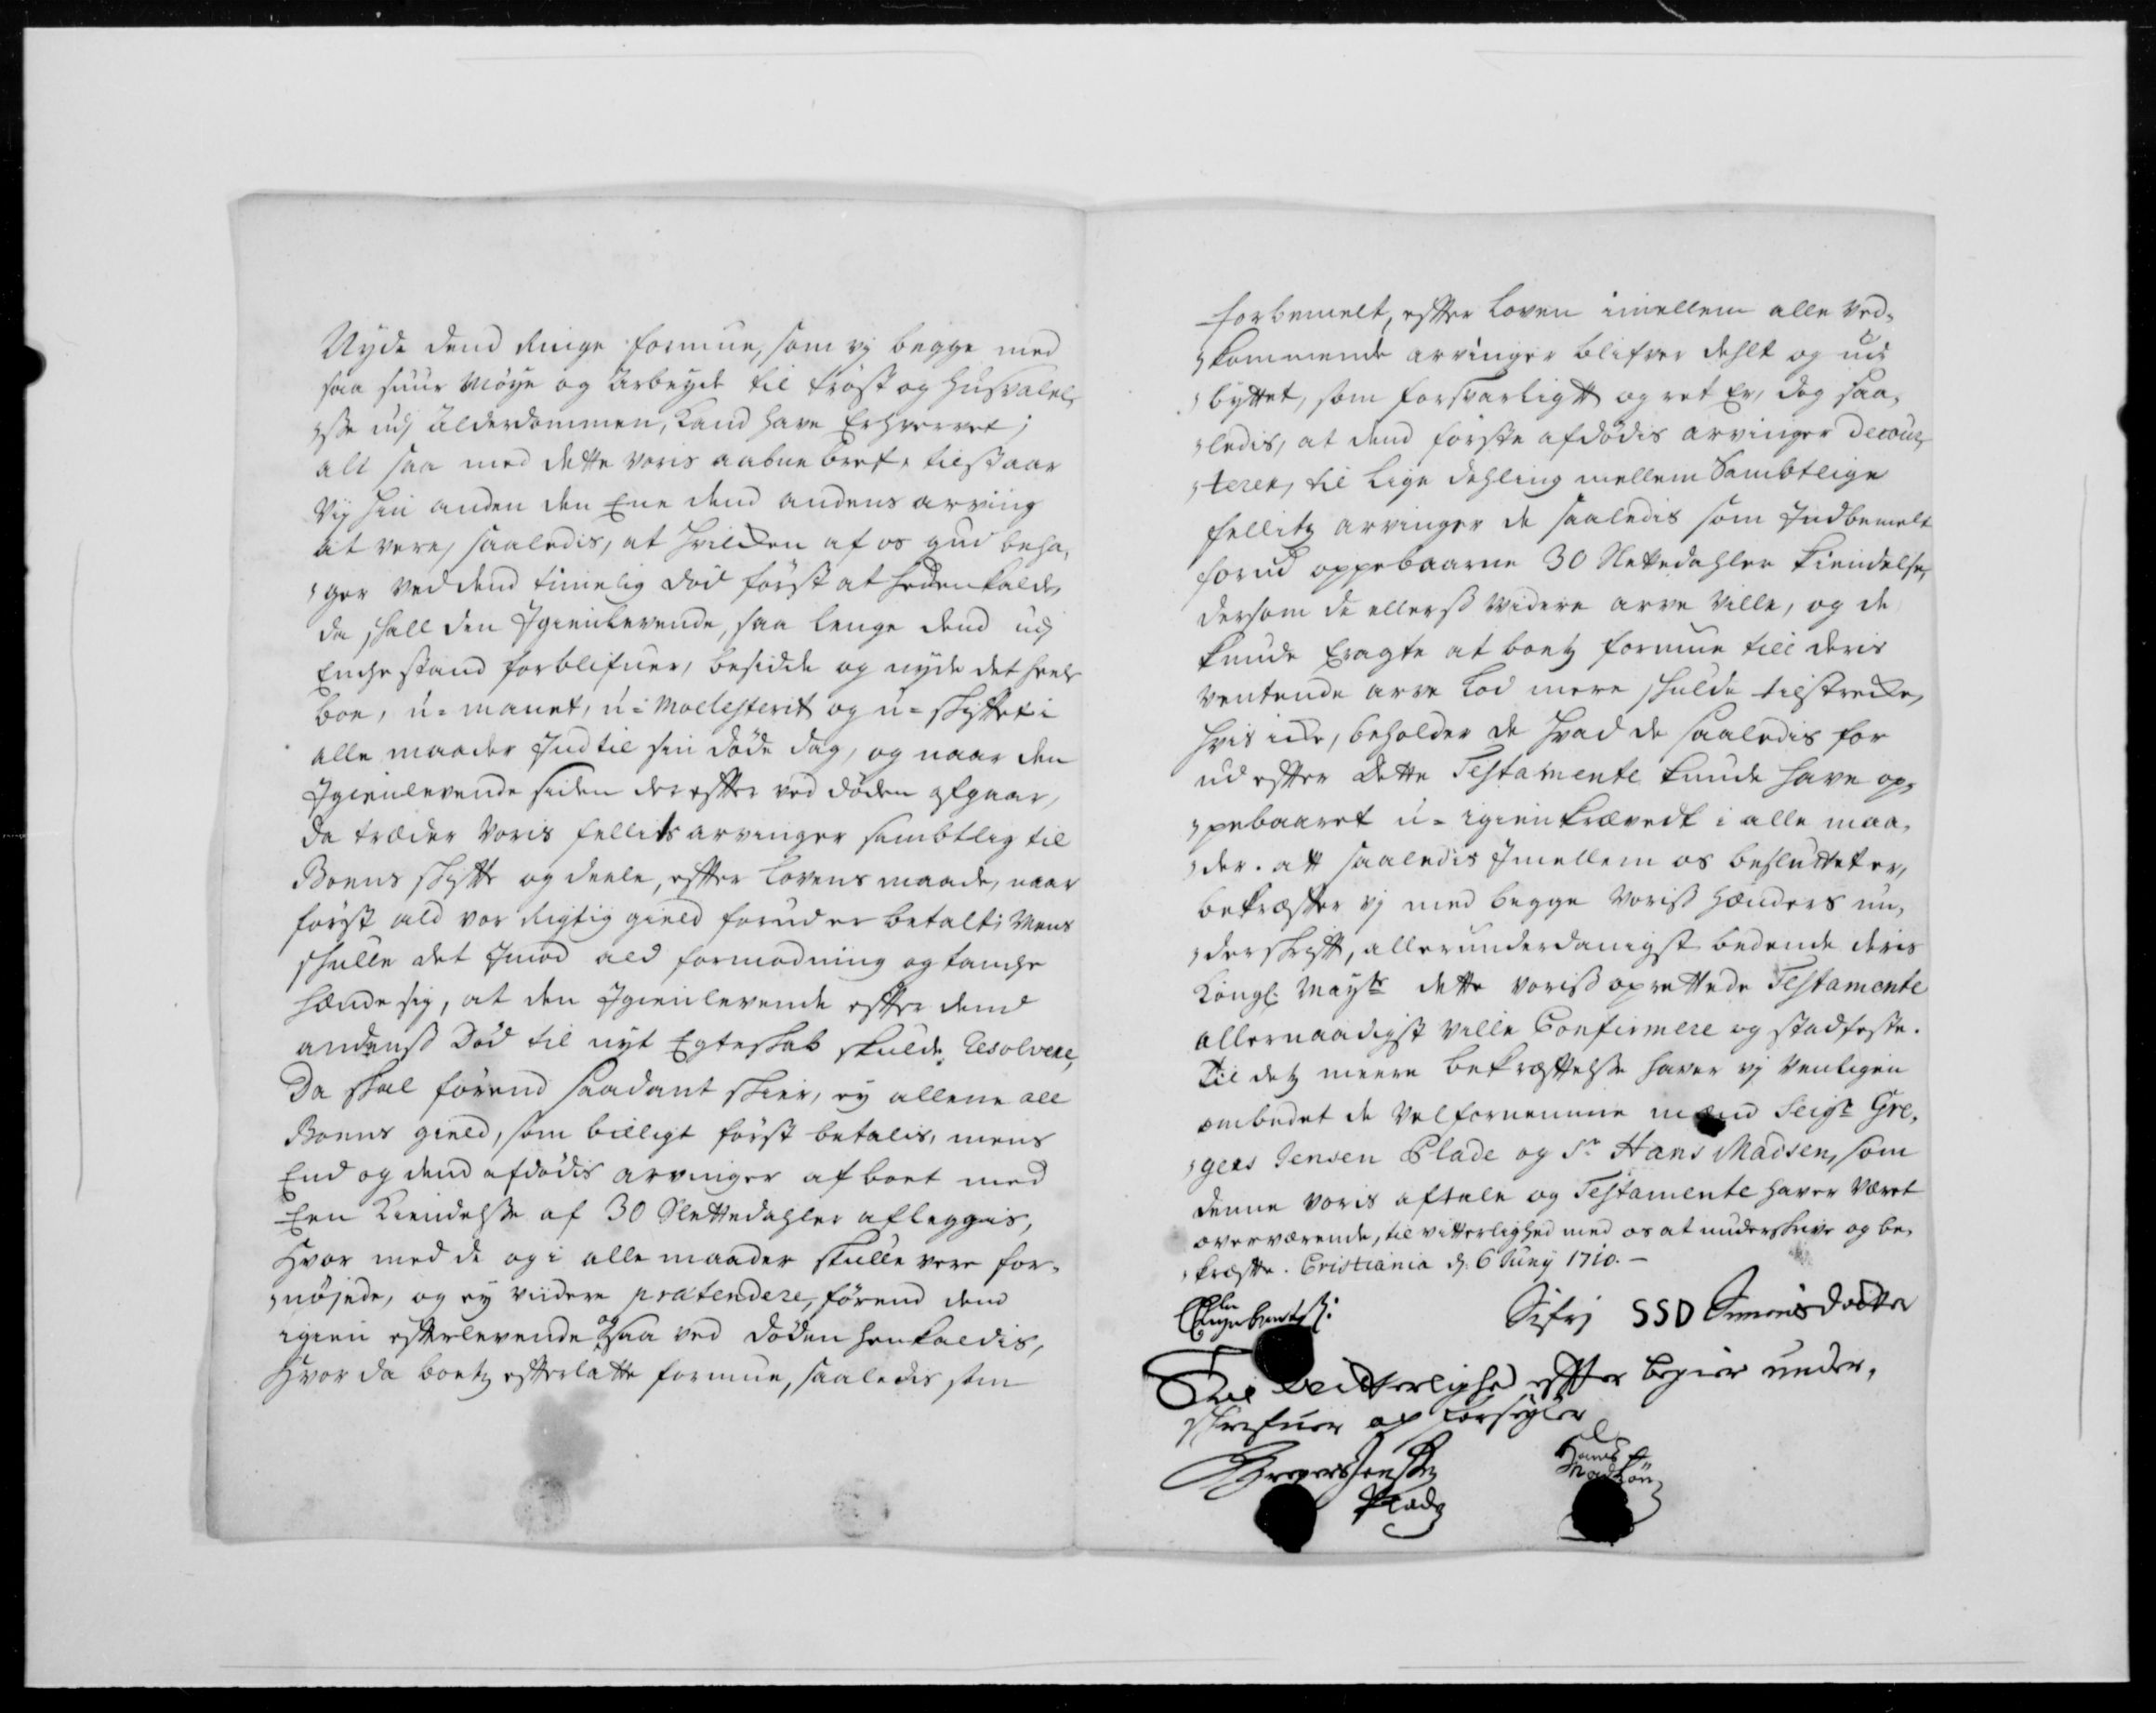 Nyde dend Ringe formue, som vj begge med
saa suur Møye og Arbeyde til trøst og husvalel,
,sse udj Alderdommen, kand have Erhvervet;
alt saa med dette voris aabne bref, tilstaar
Vij hin anden den Ene dend andens arving
at vere, saaledis, at hvilcken af os gud beha,
,ger ved dend timelig Død først at hedenkalde,
da skall den Igienlevende, saa lenge dend udj
Enche stand forblifuer, besidde og nyde det heele
boe, u-manet, u-Molesterit og u-skiftet i
alle maader Indtil sin døde dag, og naar den
Igienlevende siden derefter ved døden afgaar,
da træder voris fellits arvinger sambtlig til
Boens skifte og deele, efter Lovens maade, naar
først ald vor Rigtig gield forud er betalt; Mens
skulle det Imod ald formodning og tanche
hænde sig, at den Igienlevende efter dend
andenß Død til nyt Egteskab skulde Resolvere,
Da skal førend saadant skier, ej allene all
Boens gield, som billigt først betalis, mens
End og dend afdødis arvinger af boet med
Een Kiendelse af 30 Slettedahler afleggis,
Hvor med de og i alle maader skulle vere for-
,nøjede, og ej viidere prætendere, førend dend
igien efterlevende og saa ved døden henkaldis,
Hvor da boets efterlatte formue, saaledis som
forbemelt, efter Loven imellem alle ved-
,kommende arvinger blifver dehlt og ud
,byttet, som forsvarligt og ret Er, dog saa,
,ledis, at dend første afdødis arvinger decour,
,terer, til Lige dehling mellem Sambtlige
fellits arvinger de saaledis som Indbemelt
forud oppebaarne 30 Slettedahlers kiendelse,
dersom de ellerß widere arve ville, og de
kunde Eragte at boets formue till deris
ventende arve Lod mere skulde tilstrecke,
hvis icke, beholder de hvad de saaledis for
ud efter dette Testamente kunde have op,
,pebaaret u-igienkrævedt i alle maa,
,der. alt saaledis Imellem os besluttet er,
bekræfter vj med begge voriß Hænders un,
,derskrift, allerunderdanigst bedende deris
Kongl: Mayts dette voriß oprettede Testamente
allernaadigst ville Confirmere og stadfeste.
Til dets meere bekræftelse haver vj venligen
ombedet de velfornemme mænd Seigr Gre,
,gers Jensen Plade og Sr Hans Madsen, som
denne voris aftale og Testamente haver været
overværende, til vitterlighed med os at underskrive og be,
,kræfte. Cristiania d. 6 Junij 1710.-
Sifrj SSD Simensdotter
Til Witterlighed efter begier under,
skrefuer og forseigler
Gregers Jensen
Plade
Hans
Madsøn